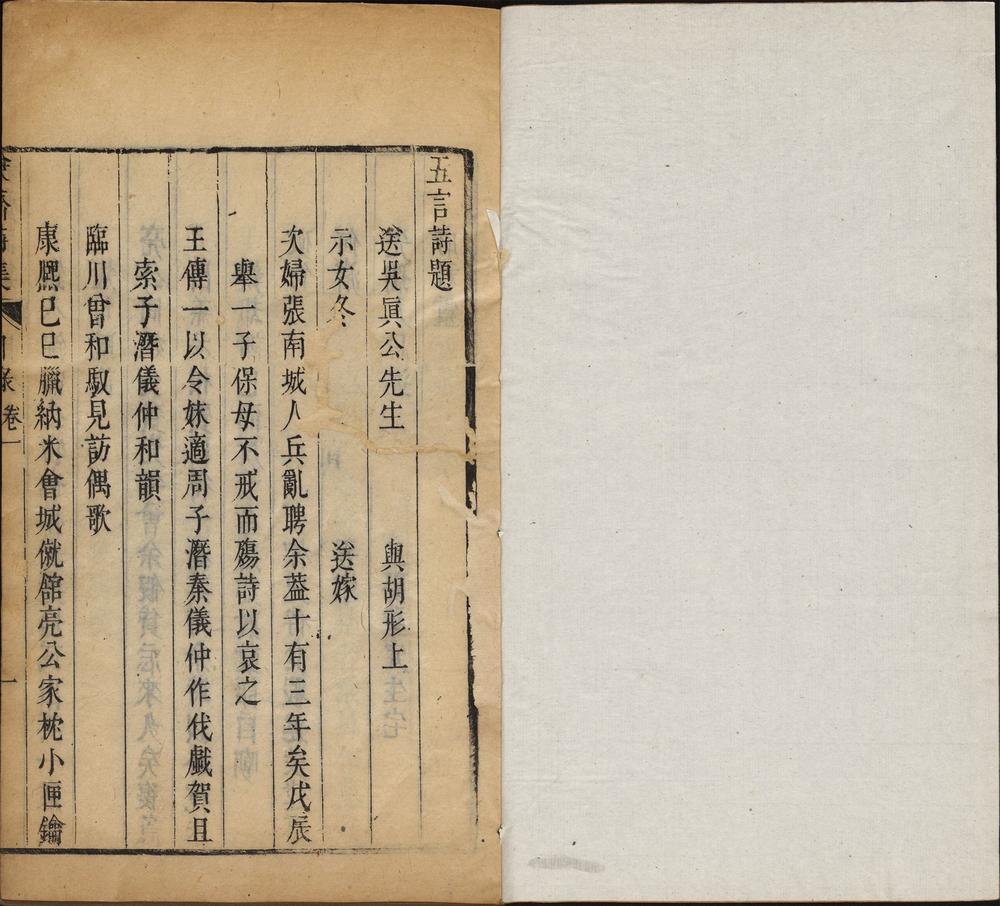 五言詩題
送吳眞公先生　與胡形上
示女冬　送嫁
次婦張南城人兵亂聘余葢十有三年矣戊辰
舉一子保母不戒而殤詩以哀之
王傳一以令妹適周子潛秦儀仲作伐戲賀且
索子潛儀仲和韻
臨川曾和馭見訪偶歌
康熈巳巳臘納米會城僦舘亮公家枕小匣鑰
集　目錄卷一　一